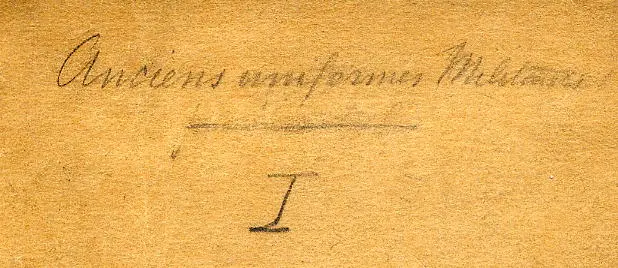 Anciens uniformes Militaires
I